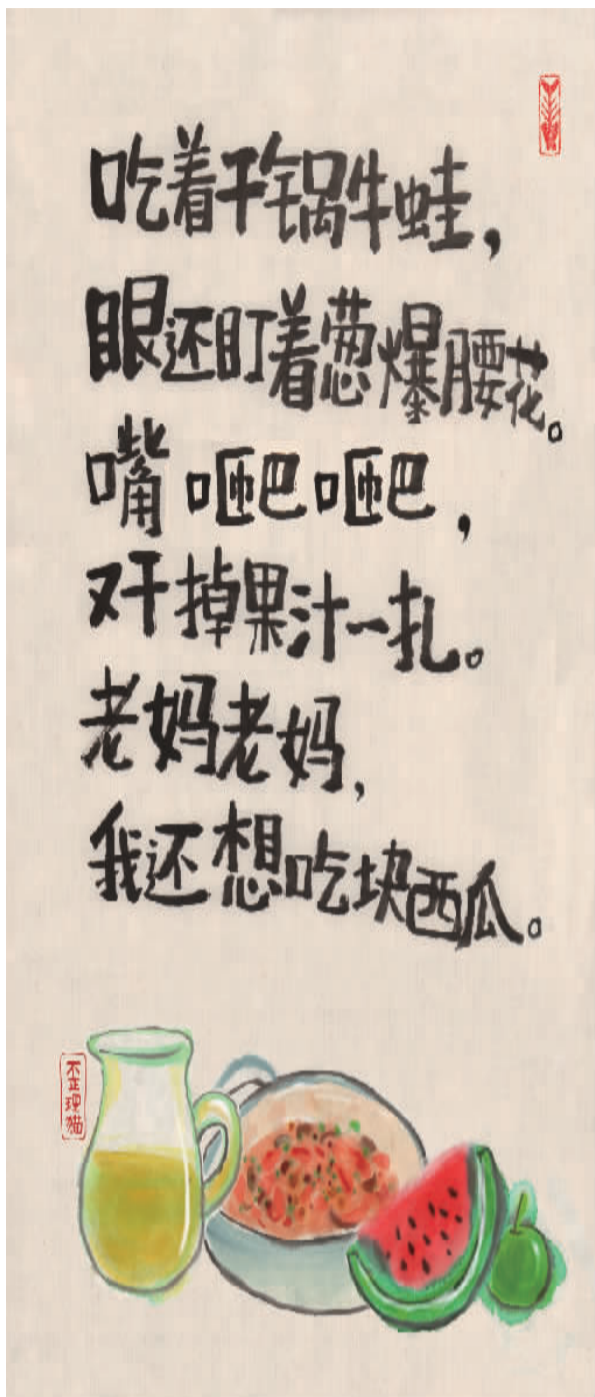 吃着干锅牛蛙，
眼还盯着葱爆腰花。
嘴咂巴咂巴，
又干掉果汁一扎。
老妈老妈，
我还想吃块西瓜。
歪理猫